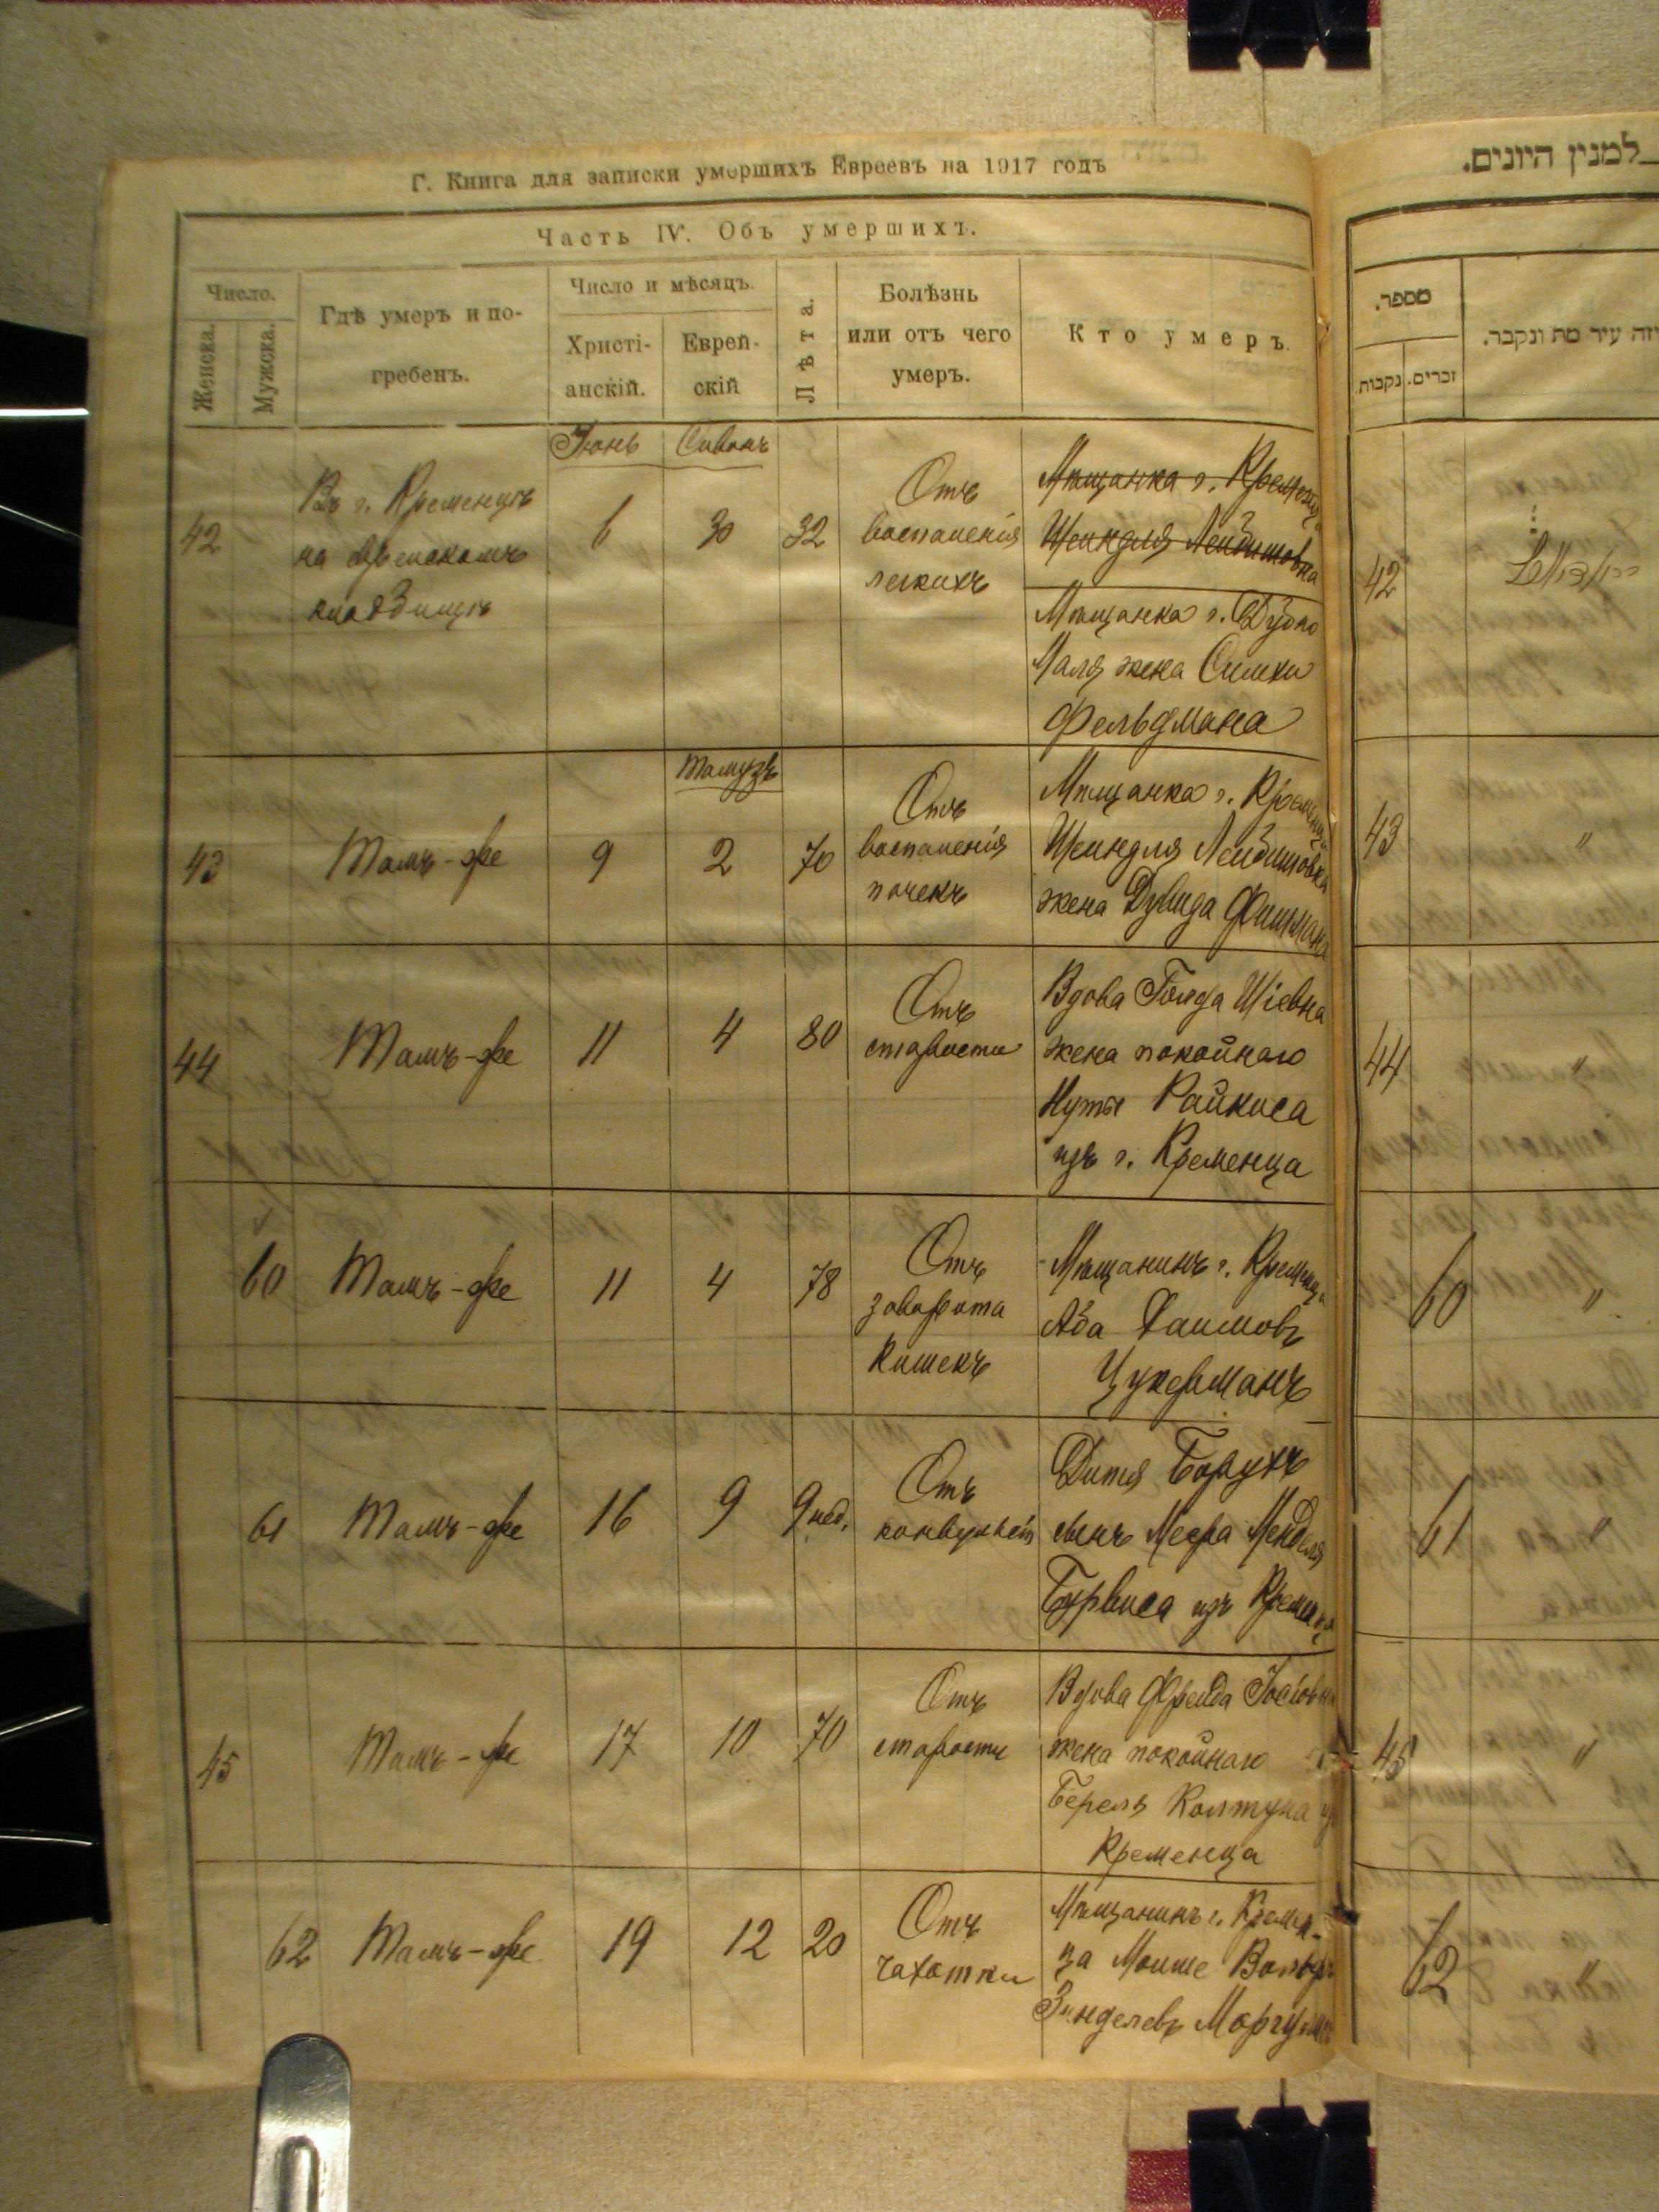 Г. Книга для записки умершихъ Евреевъ на 1917 годъ
Часть IV. Объ умершихъ.
Число.
Женска.
Мужска.
Гдѣ умеръ и по-
гребенъ.
Число и мѣсяцъ.
Христі-
анскій.
Еврей-
скій
Лѣта.
Болѣзнь
или отъ чего
умеръ.
Кто умеръ.
Іюнь
Сиванъ
42
Въ г. Кременцѣ
на еврейскомъ
кладбищѣ
6
30
32
Отъ
воспаленія
легкихъ
Мѣщанка г. Кременца
Шейндля Лейбишовна
Мѣщанка г. Дубно
Маля жена Симхи
Фельдмана
Тамузъ
43
Тамъ-же
9
2
70
Отъ
воспаленія
почекъ
Мѣщанка г. Кременца
Шейндля Лейбишовна
жена Дувида Фишмана
44
Тамъ-же
11
4
80
Отъ
старости
Вдова Голда Шіевна
жена покойнаго
Нуты Райкиса
изъ г. Кременца
60
Тамъ-же
11
4
78
Отъ
заворота
кишекъ
Мѣщанинъ г. Кременца
Аба Хаимовъ
Цукерманъ
61
Тамъ-же
16
9
9 нед.
Отъ
Дитя Борухъ
сынъ Меера Менделя
изъ Кременца
45
Тамъ-же
17
10
70
Отъ
старости
Вдова Фрейда
жена покойнаго
Береля Колтуна
Кременца
62
Тамъ-же
19
12
20
Отъ
чахотки
Мѣщанинъ г. Кремен-
ца Мошие
למנין היונים.
מספר.
נקבות.
זכרים.
עיר מת ונקבר.
42
43
"
44
"
60
"
61
"
45
"
62
"